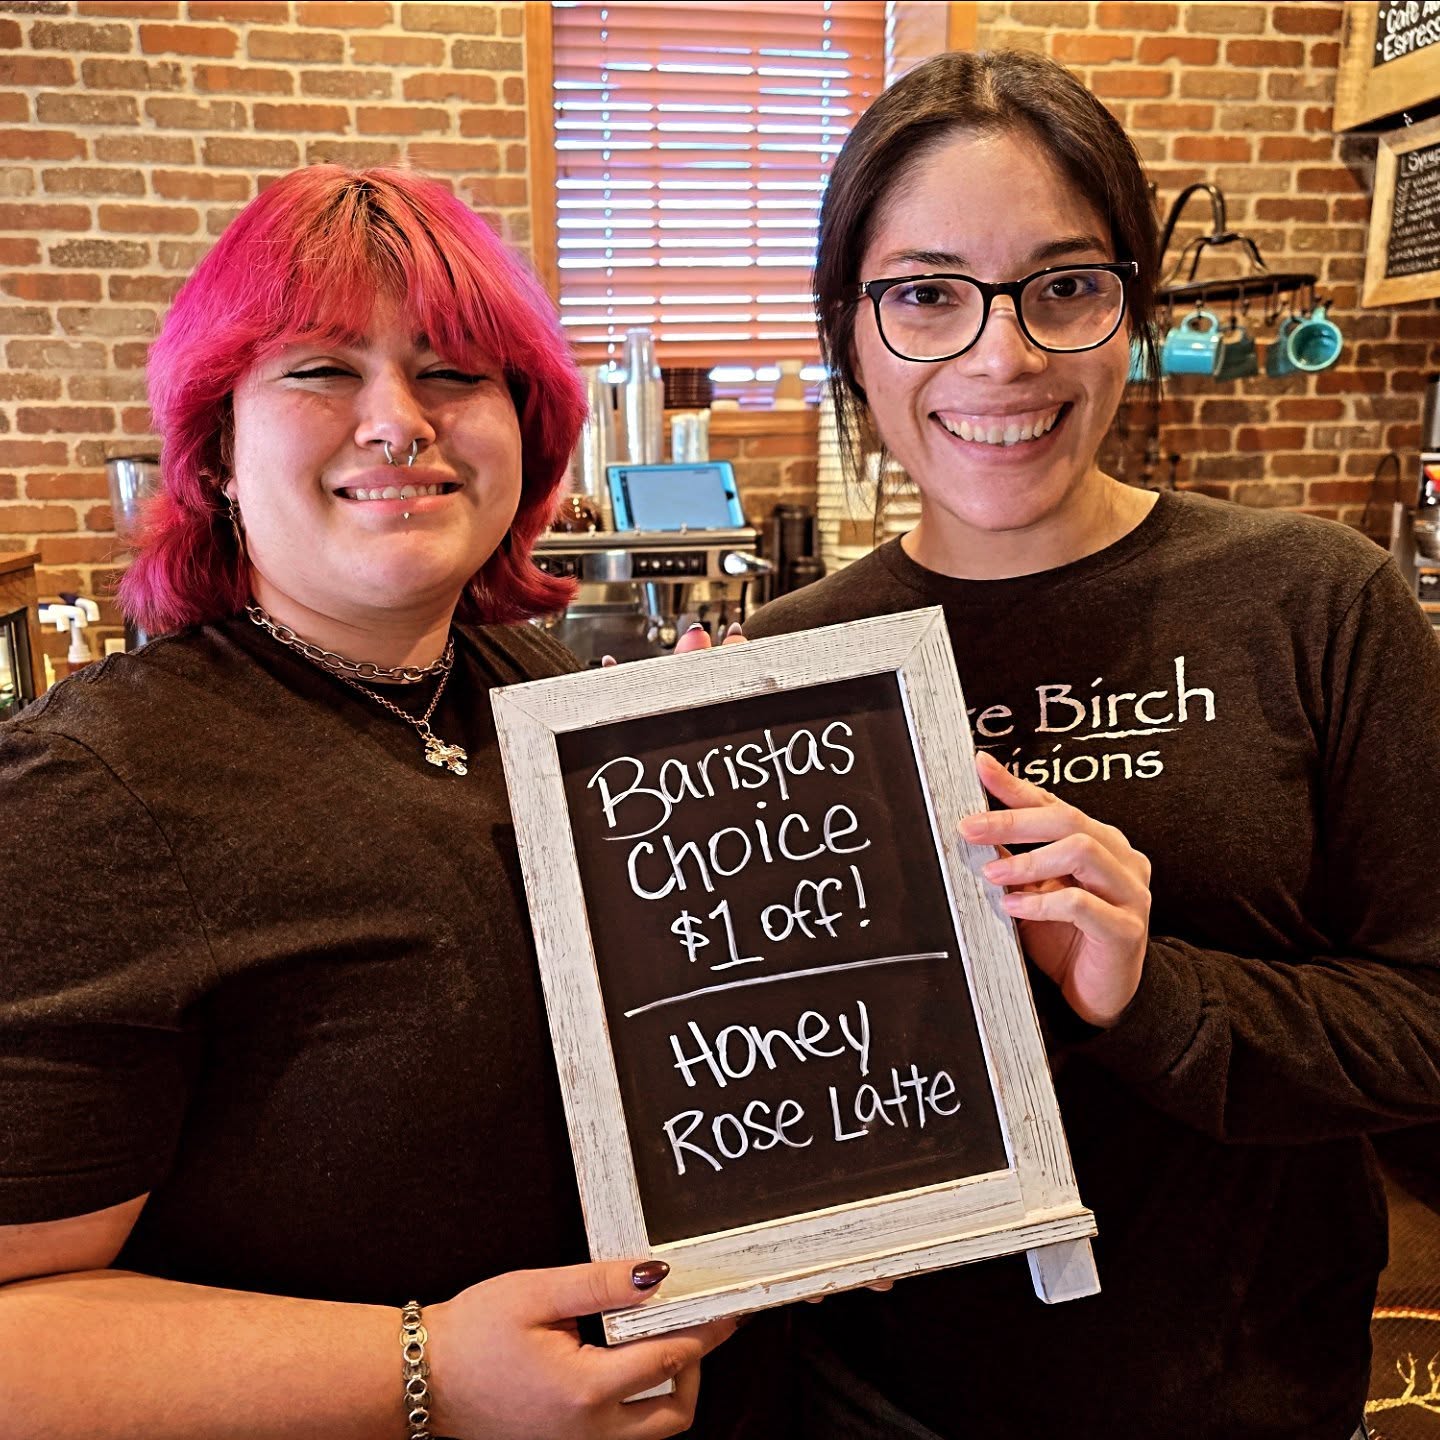 Café Au
Espress
Syrup
Baristas
choice
$1 off!
Honey
Rose Latte
te Birch
visions